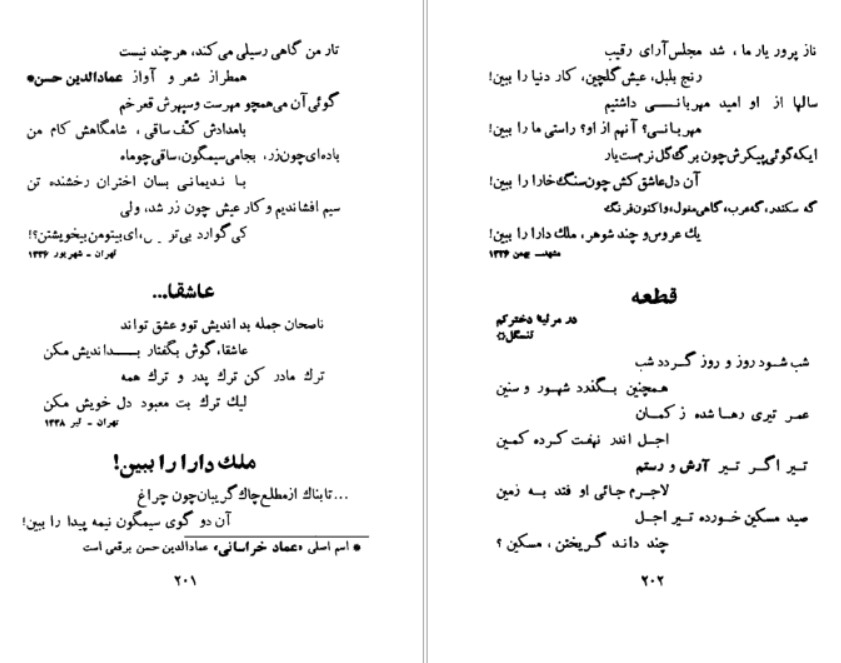 تار من گاهی رسیلی می‌کند، هر چند نیست
همطراز شعر و آواز عمادالدین حسن●
گوئی آن می‌همچو مهرست و سپهرش قعر خم
بامدادش کف ساقی ، شامگاهش کام من
باده‌ای چون‌زر، بجامی‌سیمگون، ساقی‌چوماه
با ندیمانی بسان اختران رخشنده تن
سیم افشاندیم و کار عیش چون زر شد، ولی
کی گوارد بی‌تو ،ای‌بیتومن‌بیخویشتن؟!
تهران ـ شهریور ۱۳۳۶
عاشقا...
ناصحان جمله بد اندیش توو عشق تواند
عاشقا، گوش بگفتار بـــداندیش مکن
ترك مادر کن ترك پدر و ترك همه
لیك ترك بت معبود دل خویش مکن
تهران ـ تیر ۱۳۳۸
ملك دارا را ببین!
...تابناك ازمطلع‌چاك‌گریبان‌چون چراغ
آن دو گوی سیمگون نیمه پیدا را ببین!
● اسم اصلی «عماد خراسانی» عمادالدین حسن برقعی است
۲۰۱
ناز پرور یار ما ، شد مجلس‌آرای رقیب
رنج بلبل، عیش گلچین، کار دنیا را ببین!
سالها از او امید مهربانـــی داشتیم
مهربانـی؟ آنهم از او؟ راستی ما را ببین!
ایکه‌گوئی‌پیکرش‌چون برگ‌گل‌نرم‌ست‌یار
آن دل‌عاشق‌کش چون‌سنگ‌خارا را ببین!
گه سکندر، گه‌عرب، گاهی‌مغول، واکنون‌فرنگ
یك عروس‌و چند شوهر، ملك دارا را ببین!
مشهد ـ بهمن ۱۳۳۶
قطعه
در مرثیهٔ دخترکم
تنسگل☼
شب شـود روز و روز گـردد شب
همـچنین بـگذرد شهـور و سنین
عمـر تیری رهـا شده ز کمـان
اجـل اندر نهفت کـرده کمـین
تـیر اگـر تـیر آرش و رستم
لاجـرم جائی او فتد بـه زمین
صید مسکین خـورده تـیر اجـل
چند داند گـریختن ، مسکین ؟
۲۰۲